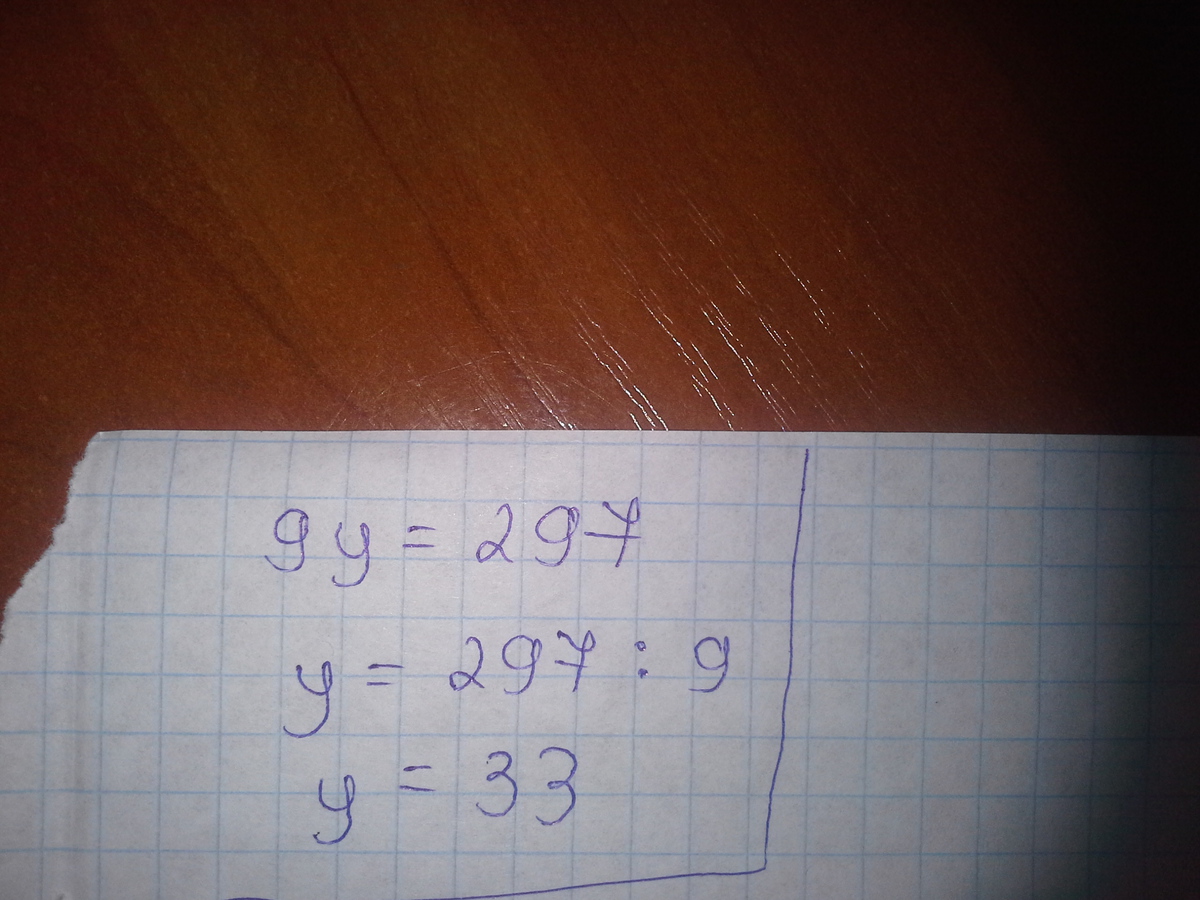 9y = 297
y = 297 : 9
y = 33